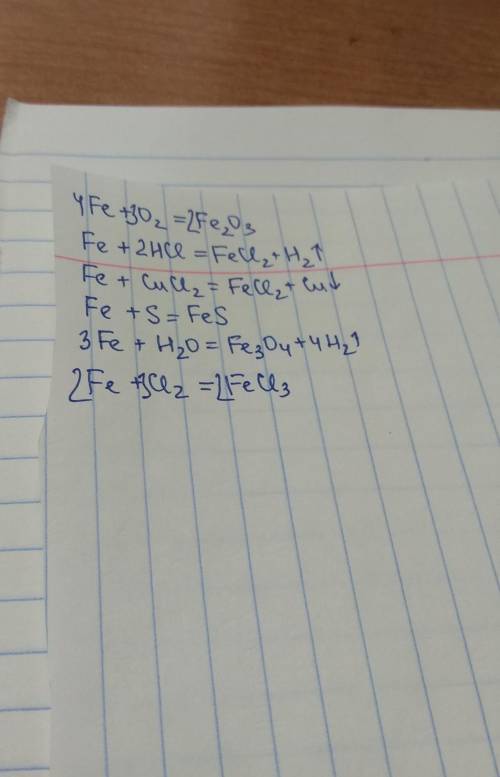 4Fe + 3O₂ = 2Fe₂O₃
Fe + 2HCl = FeCl₂ + H₂↑
Fe + CuCl₂ = FeCl₂ + Cu↓
Fe + S = FeS
3Fe + H₂O = Fe₃O₄ + 4H₂↑
2Fe + 3Cl₂ = 2FeCl₃